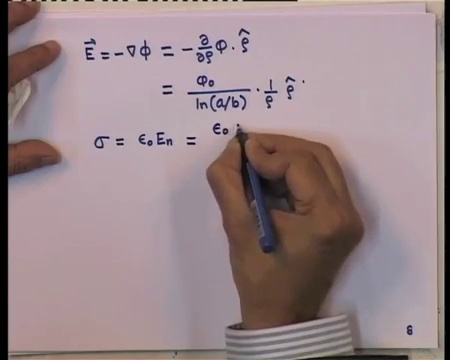 E⃗ = -∇ϕ = -∂/∂ρ φ · ρ̂
= φ₀/ln(a/b) · 1/ρ ρ̂ ·
σ = ϵ₀En = ϵ₀
8